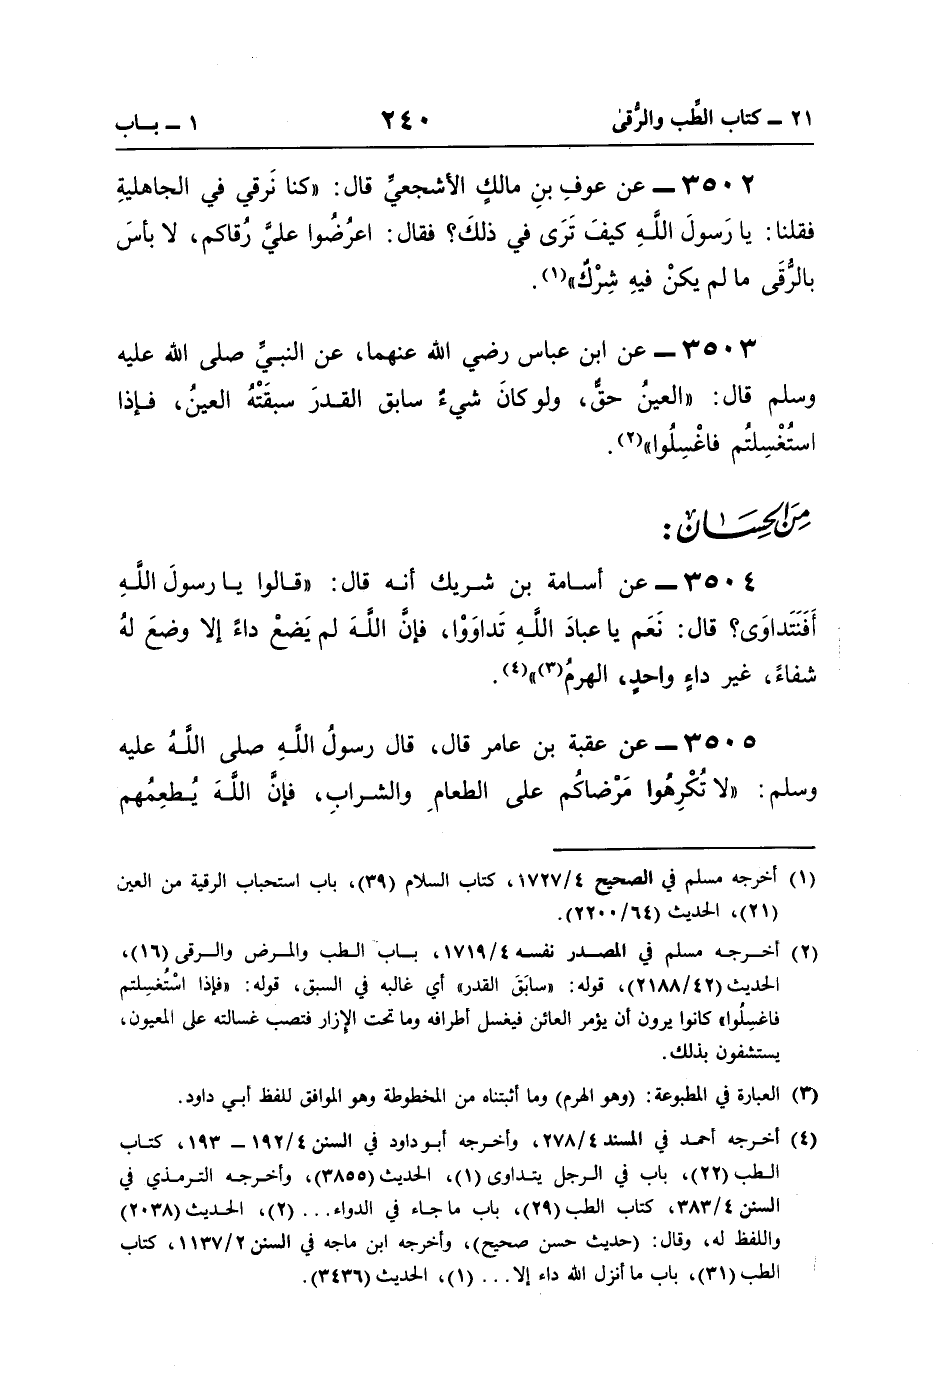 ٢١ - كتاب الطِّب والرُّقىٰ ٢٤٠ ١ - بـاب
٣٥٠٢ - عن عوفِ بنِ مالكٍ الأشجعيِّ قال: «كنا نَرقي في الجاهليةِ
فقلنا: يا رَسولَ اللَّهِ كيفَ تَرَى في ذلكَ؟ فقال: اعرُضُوا عليَّ رُقاكم، لا بأسَ
بالرُّقَى ما لم يكنْ فيهِ شِرْكٌ»(١).
٣٥٠٣ - عن ابن عباس رضي الله عنهما، عن النبيِّ صلى الله عليه
وسلم قال: «العينُ حقٌّ، ولو كانَ شيءٌ سابق القدرَ سبقَتْهُ العينُ، فإذا
استُغْسِلتُم فاغْسِلُوا»(٢).
مِنَ الحِسَان:
٣٥٠٤ - عن أسامة بن شريك أنه قال: «قالوا يا رسولَ اللَّهِ
أَفَنَتَداوَى؟ قال: نَعَم يا عبادَ اللَّهِ تَداوَوْا، فإنَّ اللَّهَ لم يَضعْ داءً إلا وضعَ لهُ
شفاءً، غير داءٍ واحدٍ، الهرمُ(٣)»(٤).
٣٥٠٥ - عن عقبة بن عامر قال، قال رسولُ اللَّهِ صلى اللَّهُ عليه
وسلم: «لا تُكْرِهُوا مَرْضاكُم على الطعامِ والشرابِ، فإنَّ اللَّهَ يُطعِمُهم
(١) أخرجه مسلم في الصحيح ١٧٢٧/٤، كتاب السلام (٣٩)، باب استحباب الرقية من العين
(٢١)، الحديث (٢٢٠٠/٦٤).
(٢) أخرجه مسلم في المصدر نفسه ١٧١٩/٤، باب الطب والمرض والرقى (١٦)،
الحديث (٢١٨٨/٤٢)، قوله: «سابَقَ القدر» أي غالبه في السبق، قوله: «فإذا اسْتُغسِلتم
فاغسِلُوا» كانوا يرون أن يؤمر العائن فيغسل أطرافه وما تحت الإزار فتصب غسالته على المعيون،
يستشفون بذلك.
(٣) العبارة في المطبوعة: (وهو الهرم) وما أثبتناه من المخطوطة وهو الموافق للفظ أبي داود.
(٤) أخرجه أحمد في المسند ٢٧٨/٤، وأخرجه أبو داود في السنن ١٩٢/٤ - ١٩٣، كتاب
الطب (٢٢)، باب في الرجل يتداوى (١)، الحديث (٣٨٥٥)، وأخرجه الترمذي في
السنن ٣٨٣/٤، كتاب الطب (٢٩)، باب ما جاء في الدواء... (٢)، الحديث (٢٠٣٨)
واللفظ له، وقال: (حديث حسن صحيح)، وأخرجه ابن ماجه في السنن ١١٣٧/٢، كتاب
الطب (٣١)، باب ما أنزل الله داء إلا... (١)، الحديث (٣٤٣٦).